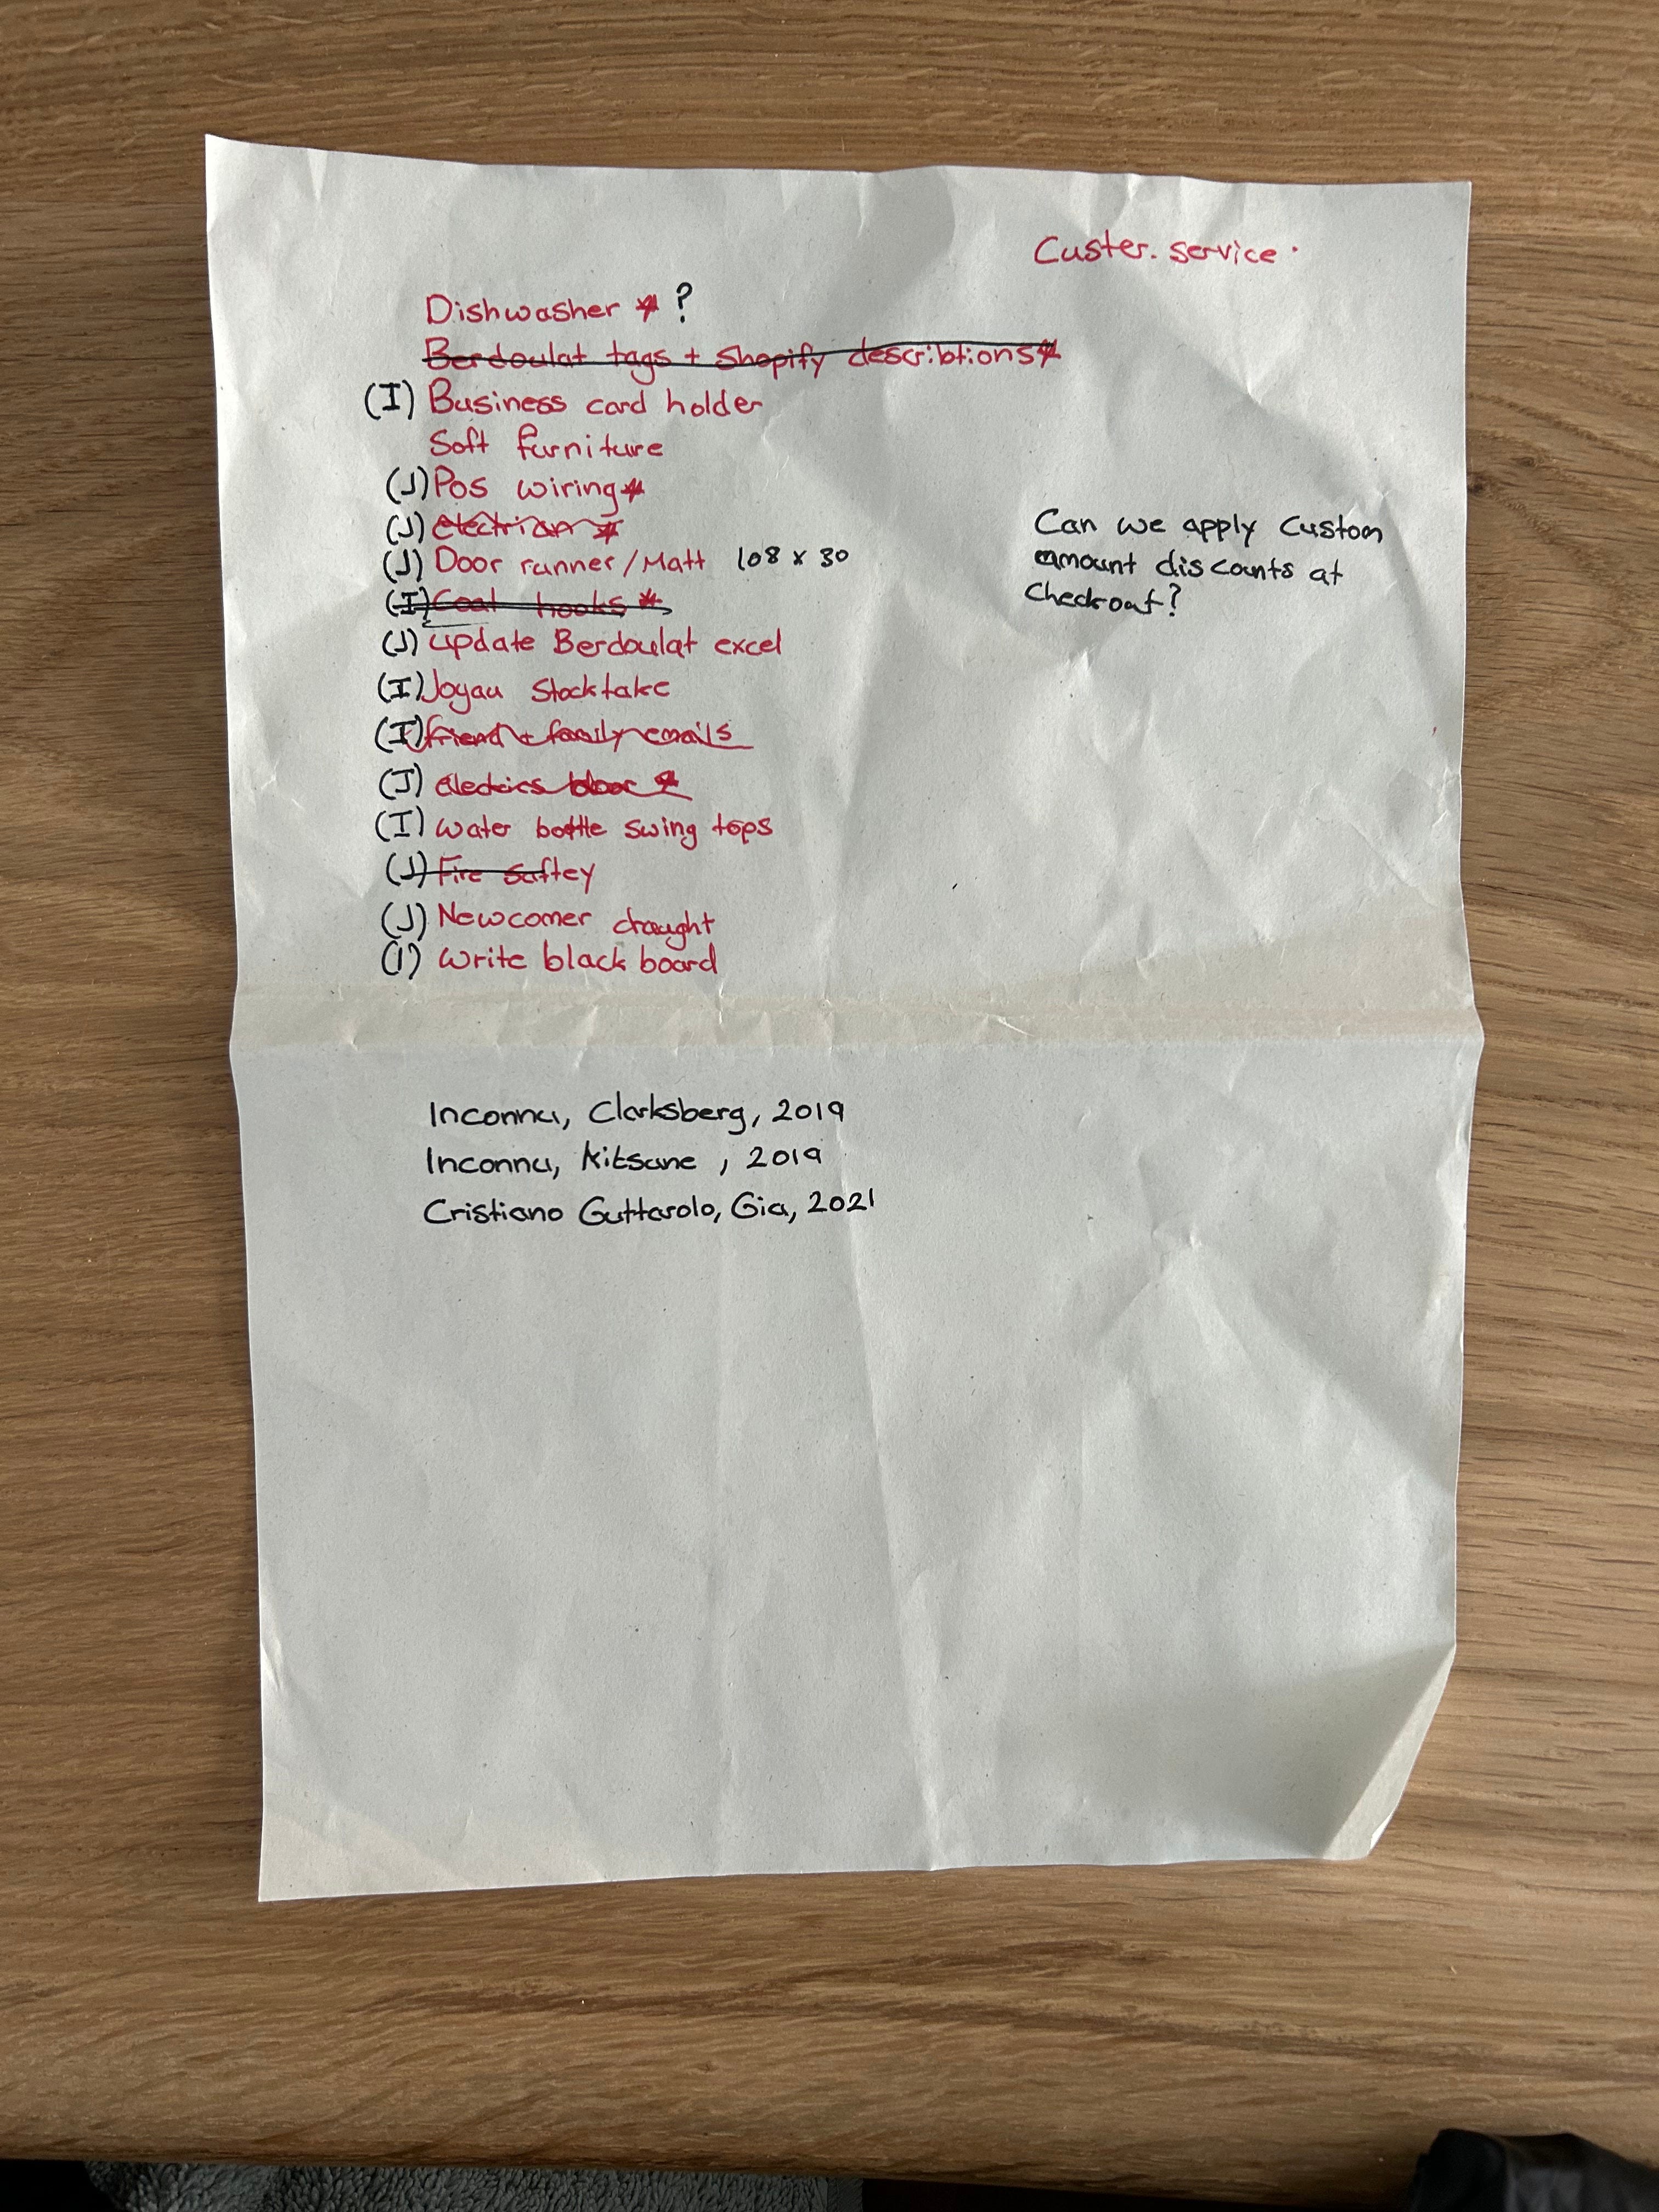 Custer. service .
Dishwasher * ?
Berdoulat tags + Shopify describtions *
(I) Business card holder
Soft furniture
(J) Pos wiring *
(J) electrian *
(J) Door runner/Matt 108 x 30
(I) Coat hooks *
(J) update Berdoulat excel
(I) Joyau Stocktake
(I) friend + family emails
(J) electrics *
(I) water bottle swing tops
(J) Fire saftey
(J) Newcomer draught
(I) write black board
Can we apply Custom
amount discounts at
Checkout?
Inconnu, Clarksberg, 2019
Inconnu, Kitsune, 2019
Cristiano Guttarolo, Gia, 2021